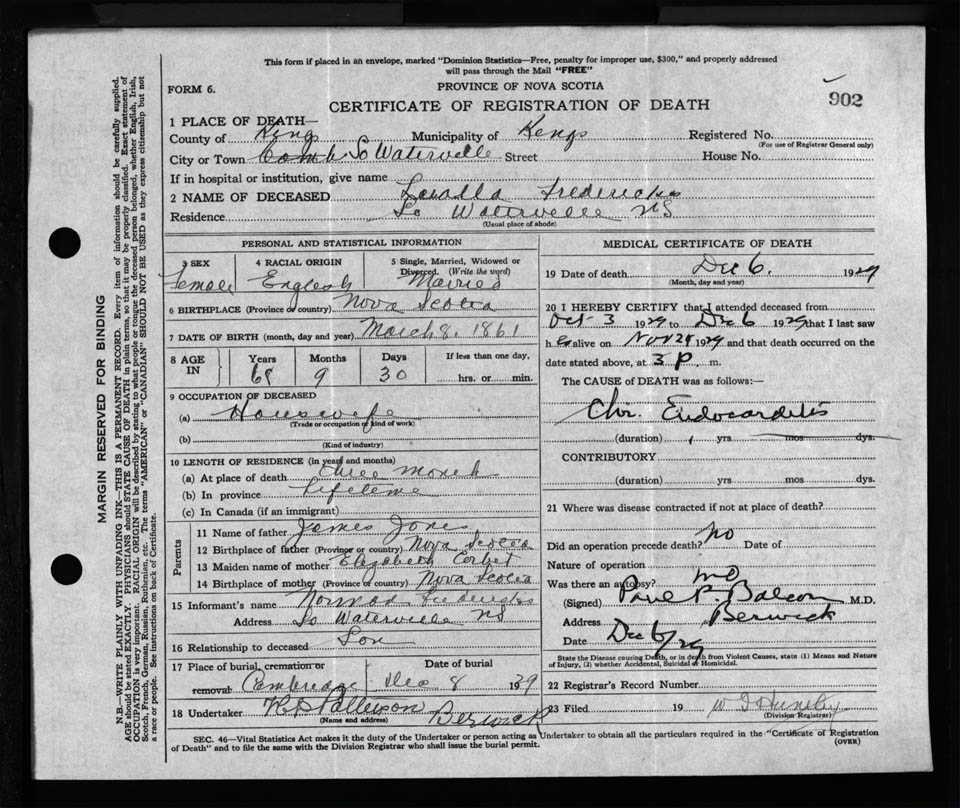 This form if placed in an envelope, marked "Dominion Statistics—Free, penalty for improper use, $300," and properly addressed
will pass through the Mail "FREE"
FORM 6.
PROVINCE OF NOVA SCOTIA
CERTIFICATE OF REGISTRATION OF DEATH
902
1 PLACE OF DEATH—
County of Kings Municipality of Kings Registered No.
(For use of Registrar General only)
City or Town So Waterville Street House No.
If in hospital or institution, give name
2 NAME OF DECEASED Fredericks
Residence So Waterville NS
(Usual place of abode)
PERSONAL AND STATISTICAL INFORMATION
3 SEX 4 RACIAL ORIGIN 5 Single, Married, Widowed or
Divorced. (Write the word)
Female English Married
6 BIRTHPLACE (Province or country) Nova Scotia
7 DATE OF BIRTH (month, day and year) March 8, 1861
8 AGE IN Years Months Days If less than one day,
68 9 30 hrs. or min.
9 OCCUPATION OF DECEASED
(a) Housewife
(Trade or occupation or kind of work)
(b)
(Kind of industry)
10 LENGTH OF RESIDENCE (in years and months)
(a) At place of death three month
(b) In province Lifetime
(c) In Canada (if an immigrant)
Parents
11 Name of father James Jones
12 Birthplace of father (Province or country) Nova Scotia
13 Maiden name of mother Elizabeth Corbet
14 Birthplace of mother (Province or country) Nova Scotia
15 Informant's name Norman Fredericks
Address So Waterville NS
16 Relationship to deceased Son
17 Place of burial, cremation or Date of burial
removal Cambridge Dec 8 1939
18 Undertaker Patterson Berwick
(Name and address)
MEDICAL CERTIFICATE OF DEATH
19 Date of death Dec 6. 1929
(Month, day and year)
20 I HEREBY CERTIFY that I attended deceased from
Oct 3 1929 to Dec 6 1929 that I last saw
h er alive on Nov 24 1929 and that death occurred on the
date stated above, at 3 p. m.
The CAUSE OF DEATH was as follows:—
Chr. Endocarditis
(duration) 1 yrs mos dys.
CONTRIBUTORY
(duration) yrs. mos. dys.
21 Where was disease contracted if not at place of death?
Did an operation precede death? no Date of
Nature of operation
Was there an autopsy? no
(Signed) Paul P. Balcom M.D.
Address Berwick
Date Dec 6/29
State the Disease causing Death, or in death from Violent Causes, state (1) Means and Nature
of Injury, (2) whether Accidental, Suicidal or Homicidal.
22 Registrar's Record Number
23 Filed 19
(Division Registrar)
SEC. 46—Vital Statistics Act makes it the duty of the Undertaker or person acting as Undertaker to obtain all the particulars required in the "Certificate of Registration
of Death" and to file the same with the Division Registrar who shall issue the burial permit.
(OVER)
MARGIN RESERVED FOR BINDING
N.B.—WRITE PLAINLY WITH UNFADING INK—THIS IS A PERMANENT RECORD. Every item of information should be carefully supplied.
AGE should be stated EXACTLY. PHYSICIANS should STATE CAUSE OF DEATH in plain terms, so that it may be properly classified. Exact statement of
OCCUPATION is very important. RACIAL ORIGIN will be described by stating to what people or tongue the deceased person belonged, whether English, Irish,
Scotch, French, German, Russian, Ruthenian, etc. The terms "AMERICAN" or "CANADIAN" SHOULD NOT BE USED as they express citizenship but not
a race or people. See instructions on back of Certificate.